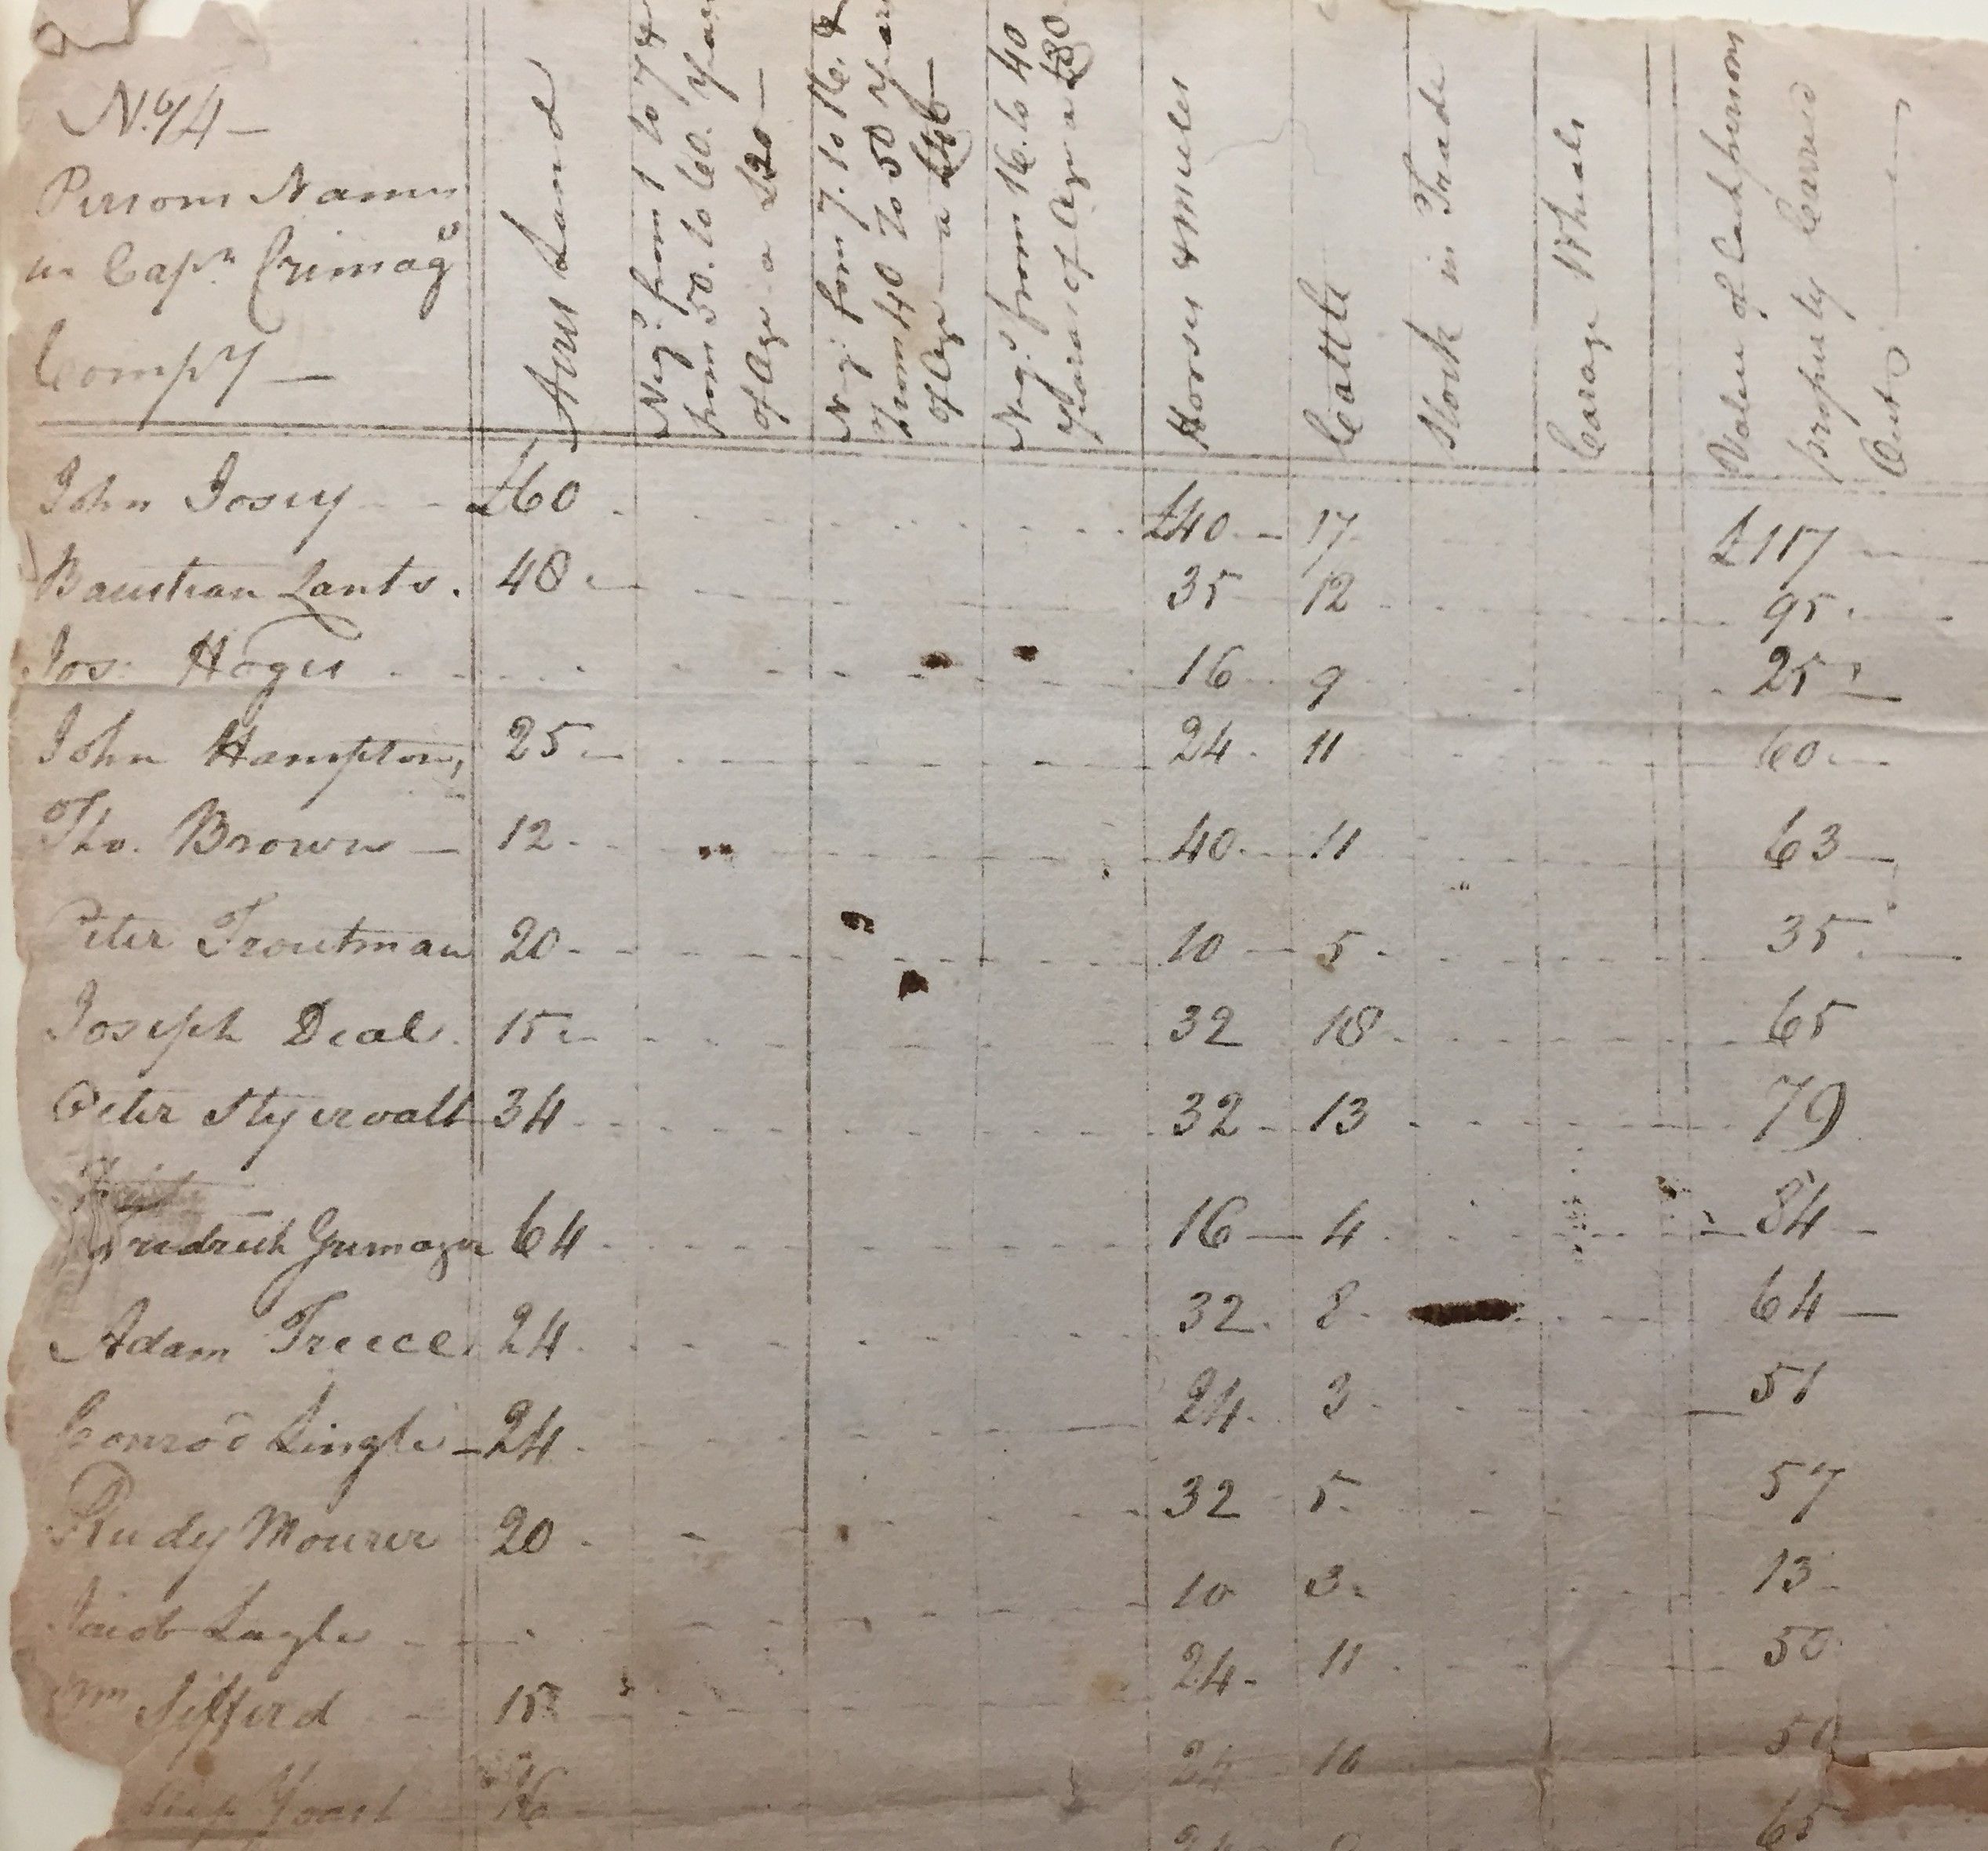 No. 14 —
Persons Names
in Capn. Crimagrs
Compy —
Acres Land
Negs. from 1 to 7 &
from 50. to 60. Years
of Age a £20 —
Negs. from 7. to 16. &
from 40 to 50 Years
of Age — a £40 —
Negs. from 16. to 40
Years of Age a £80
Horses & Mules
Cattle
Stock in Trade
Carage Wheals
Value of Each persons
property Carred
Out
John Josey £60 £40 17 £117
Baustian Lants. 48 35 12 95
Jos. Hoges 16 9 25
John Hampton, 25 24 11 60
Tho. Brown — 12 40 11 63
Peter Troutman 20 10 5 35
Joseph Deal 15 32 18 65
Peter Styervalt 34 32 13 79
Fredrick Grimager 64 16 4 84
Adam Treece 24 32 8 64
Conrod Lingle 24 24 3 51
Rudy Mourer 20 32 5 57
Jacob Lagle 10 3 13
Wm Sifferd 15 24 11 50
Yoast 16 24 10 50
24 65